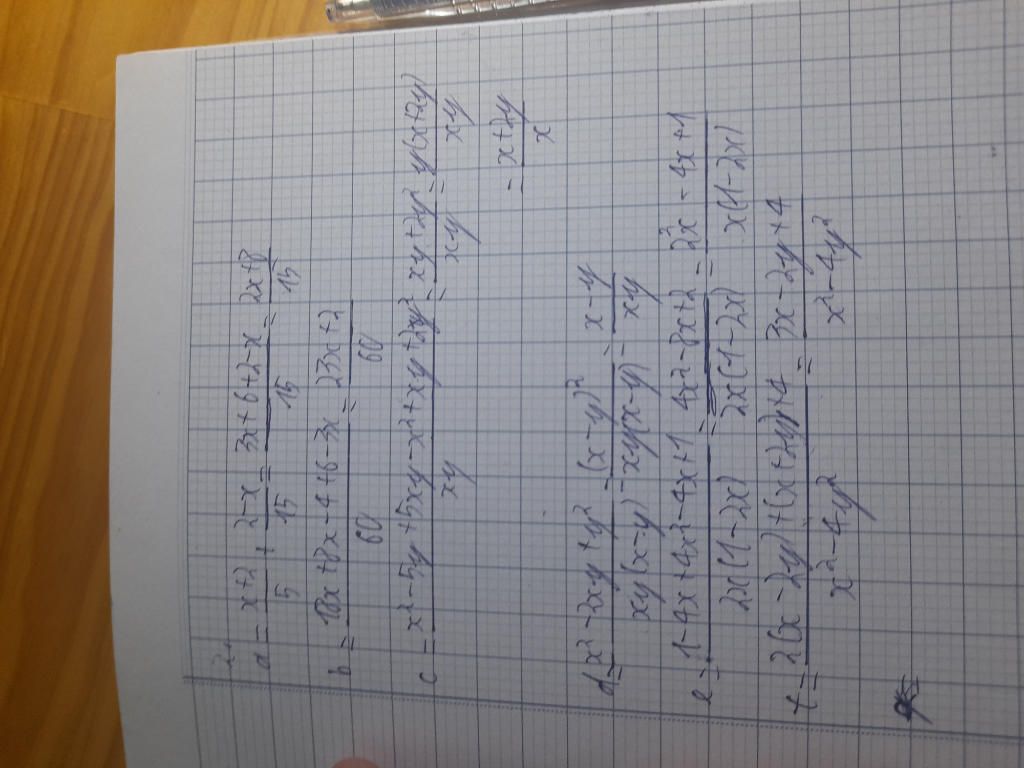 a = \frac{x+2}{5} + \frac{2-x}{15} = \frac{3x+6+2-x}{15} = \frac{2x+8}{15}
b = \frac{18x+8x-4+6-3x}{60} = \frac{23x+2}{60}
c = \frac{x^2-5y+5xy-x^2+xy+2xy^2}{xy} = \frac{xy+2y^2}{xy} = \frac{y(x+2y)}{xy}
= \frac{x+2y}{x}
d = \frac{x^2-2xy+y^2}{xy(x-y)} = \frac{(x-y)^2}{xy(x-y)} = \frac{x-y}{xy}
e = \frac{1-4x+4x^2-4x+1}{2x(1-2x)} = \frac{4x^2-8x+2}{2x(1-2x)} = \frac{2x^2-4x+1}{x(1-2x)}
f = \frac{2(x-2y)+(x+2y)+4}{x^2-4y^2} = \frac{3x-2y+4}{x^2-4y^2}